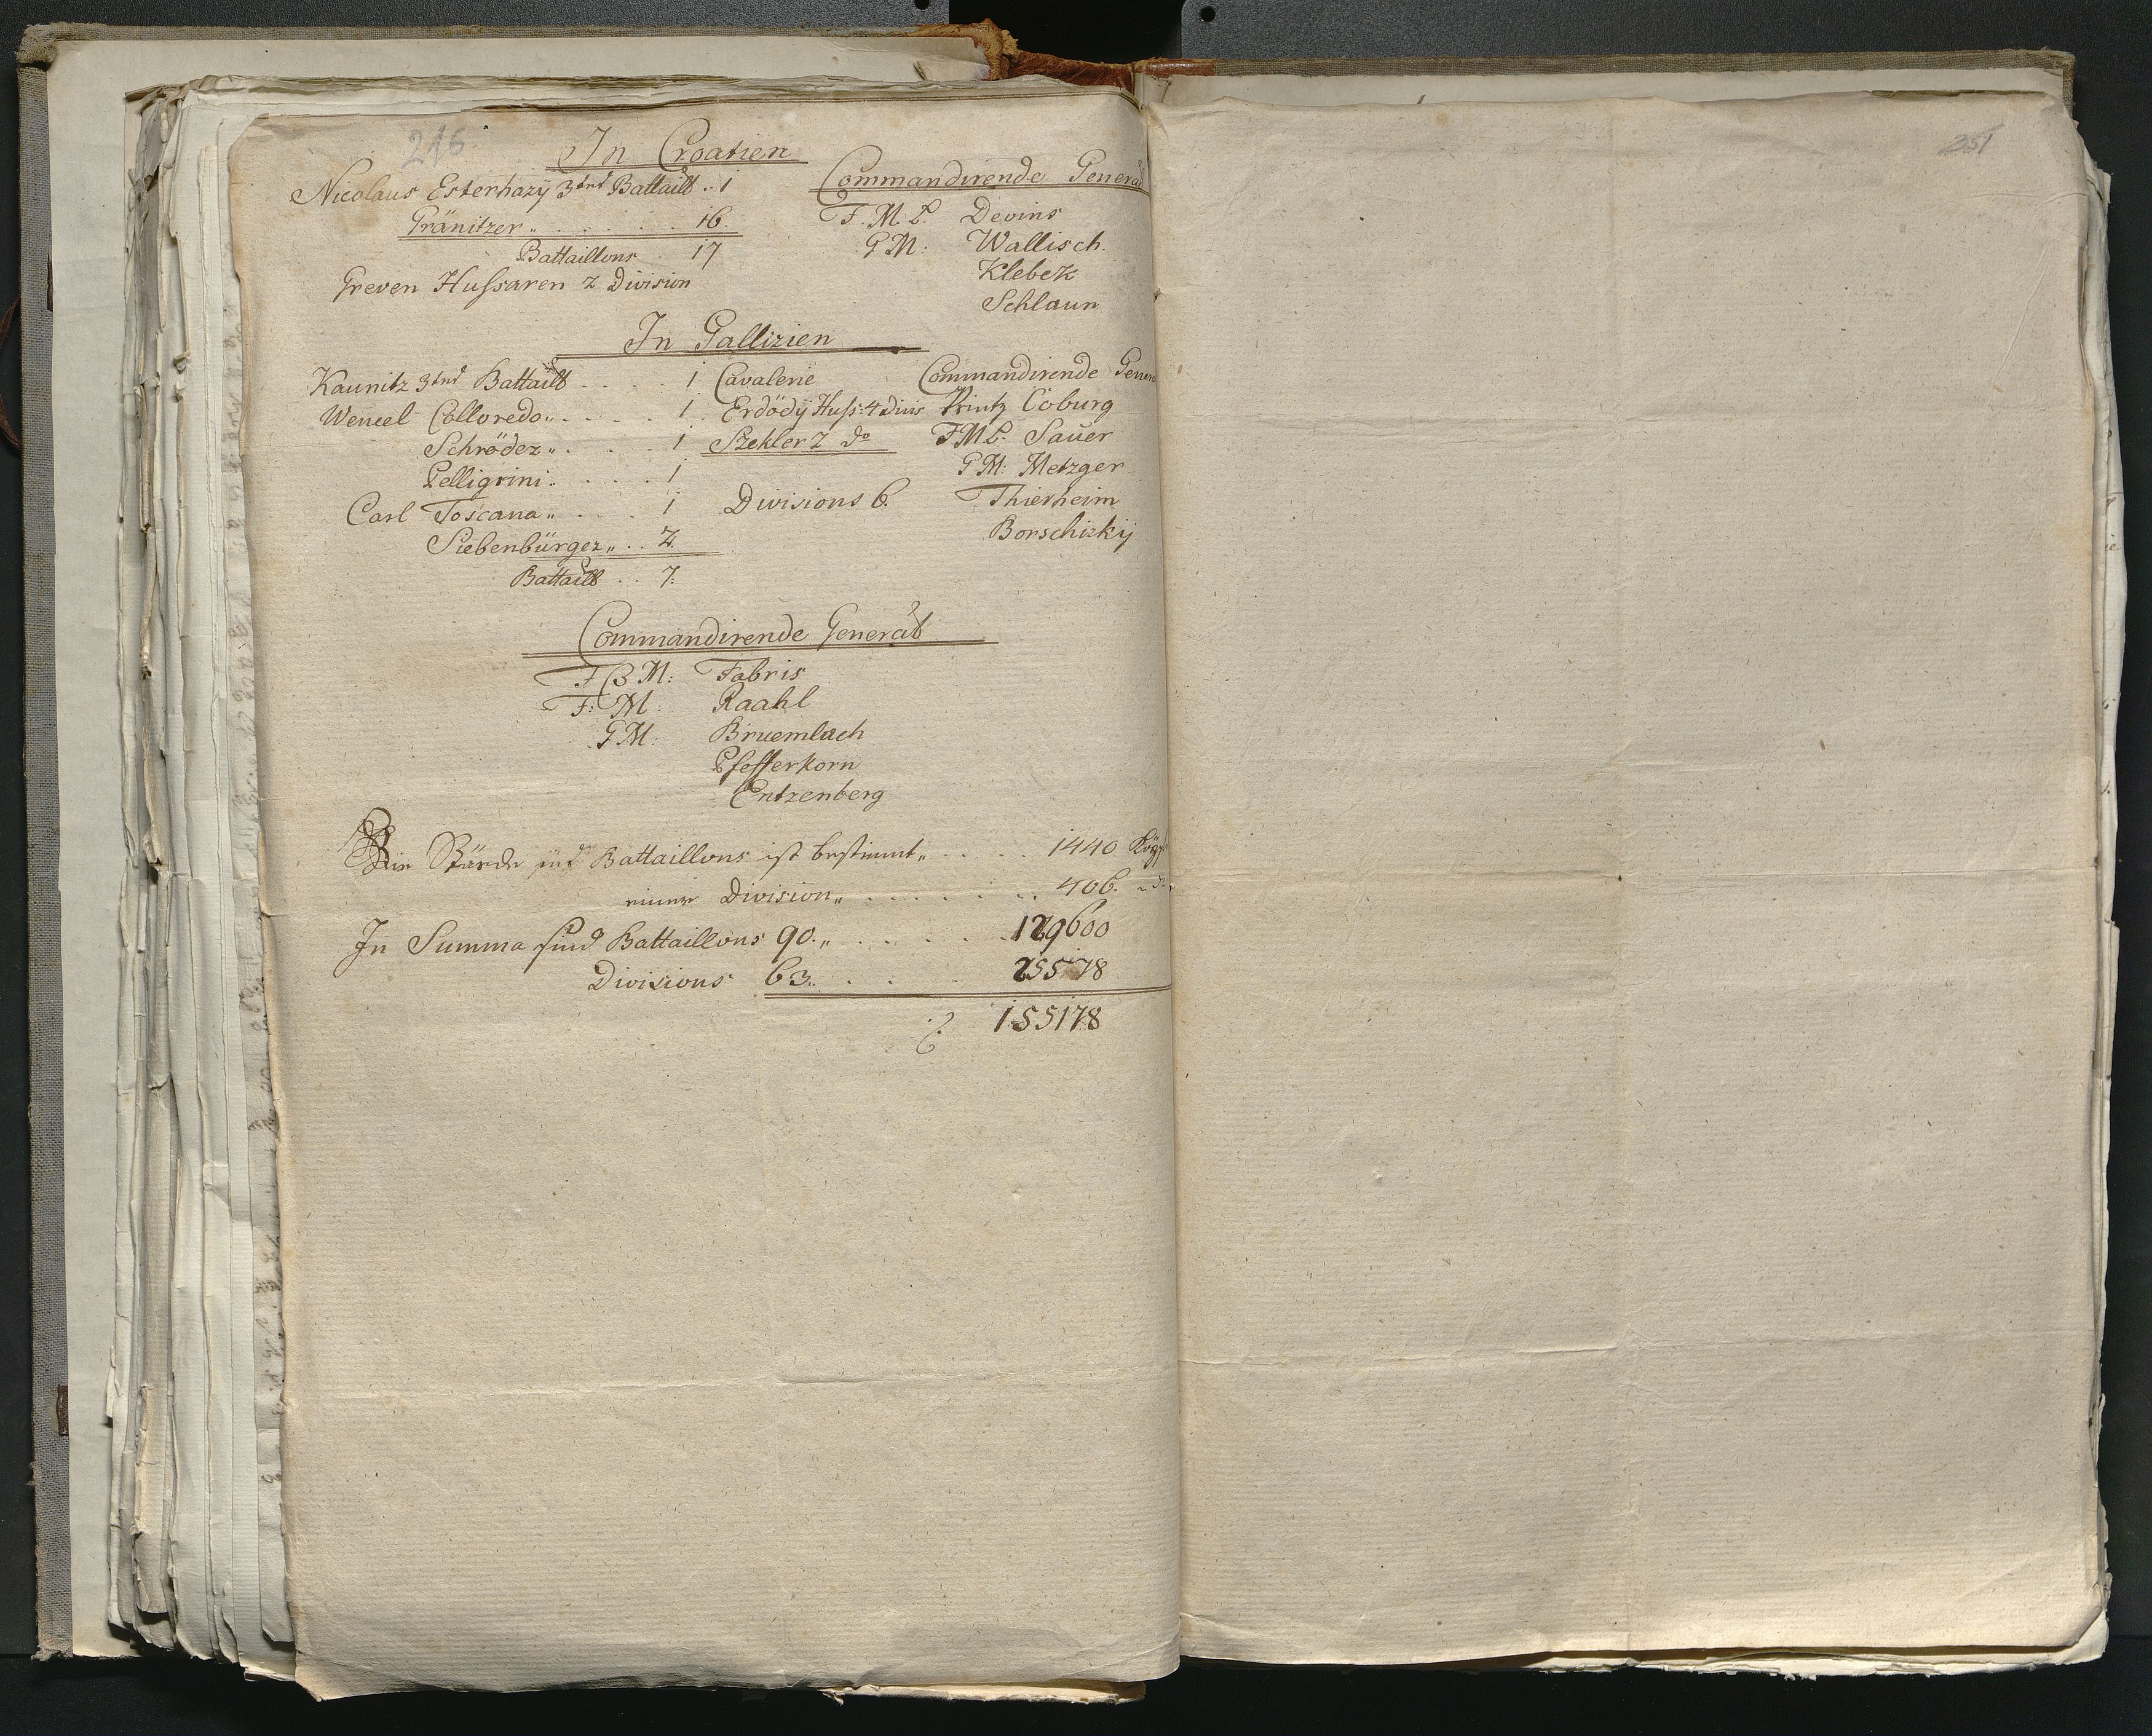 216.
In Croatien
Nicolaus Esterhazÿ 3tes Battaill .. 1
Gränitzer „ . . . . . . 16.
Battaillons . 17
Greven Hussaren 2 Division
Commandirende General
F. M. L. Devins
GM: Wallisch.
Klebek
Schlaun
In Gallizien
Kaunitz 3tes Battaill . . . . 1
Wencel Colloredo „ . . . . . 1
Schröder „ . . . . 1
Pelligrini „ . . . . 1
Carl Toscana „ . . . . 1
Siebenbürger „ . . 2.
Battaill . . 7:
Cavalerie
Erdödÿ Huss: 4 Divis
Szekler 2 do
Divisions 6.
Commandirende Gener
Printz Coburg
FML. Sauer
GM: Metzger
Thierheim
Borschizkÿ
Commandirende General
F Z M: Fabris
F: M: Raahl
GM: Bruemlach
Pfefferkorn
Entzenberg
Die Stärke jed Battaillons ist bestimmt „ . . . . 1440 Köpf
einer Division „ . . . . . . . 406. „ do „
In Summa sind Battaillons 90. „ . . . . . 129600
Divisions 63 „ . . . 25578
155178
251